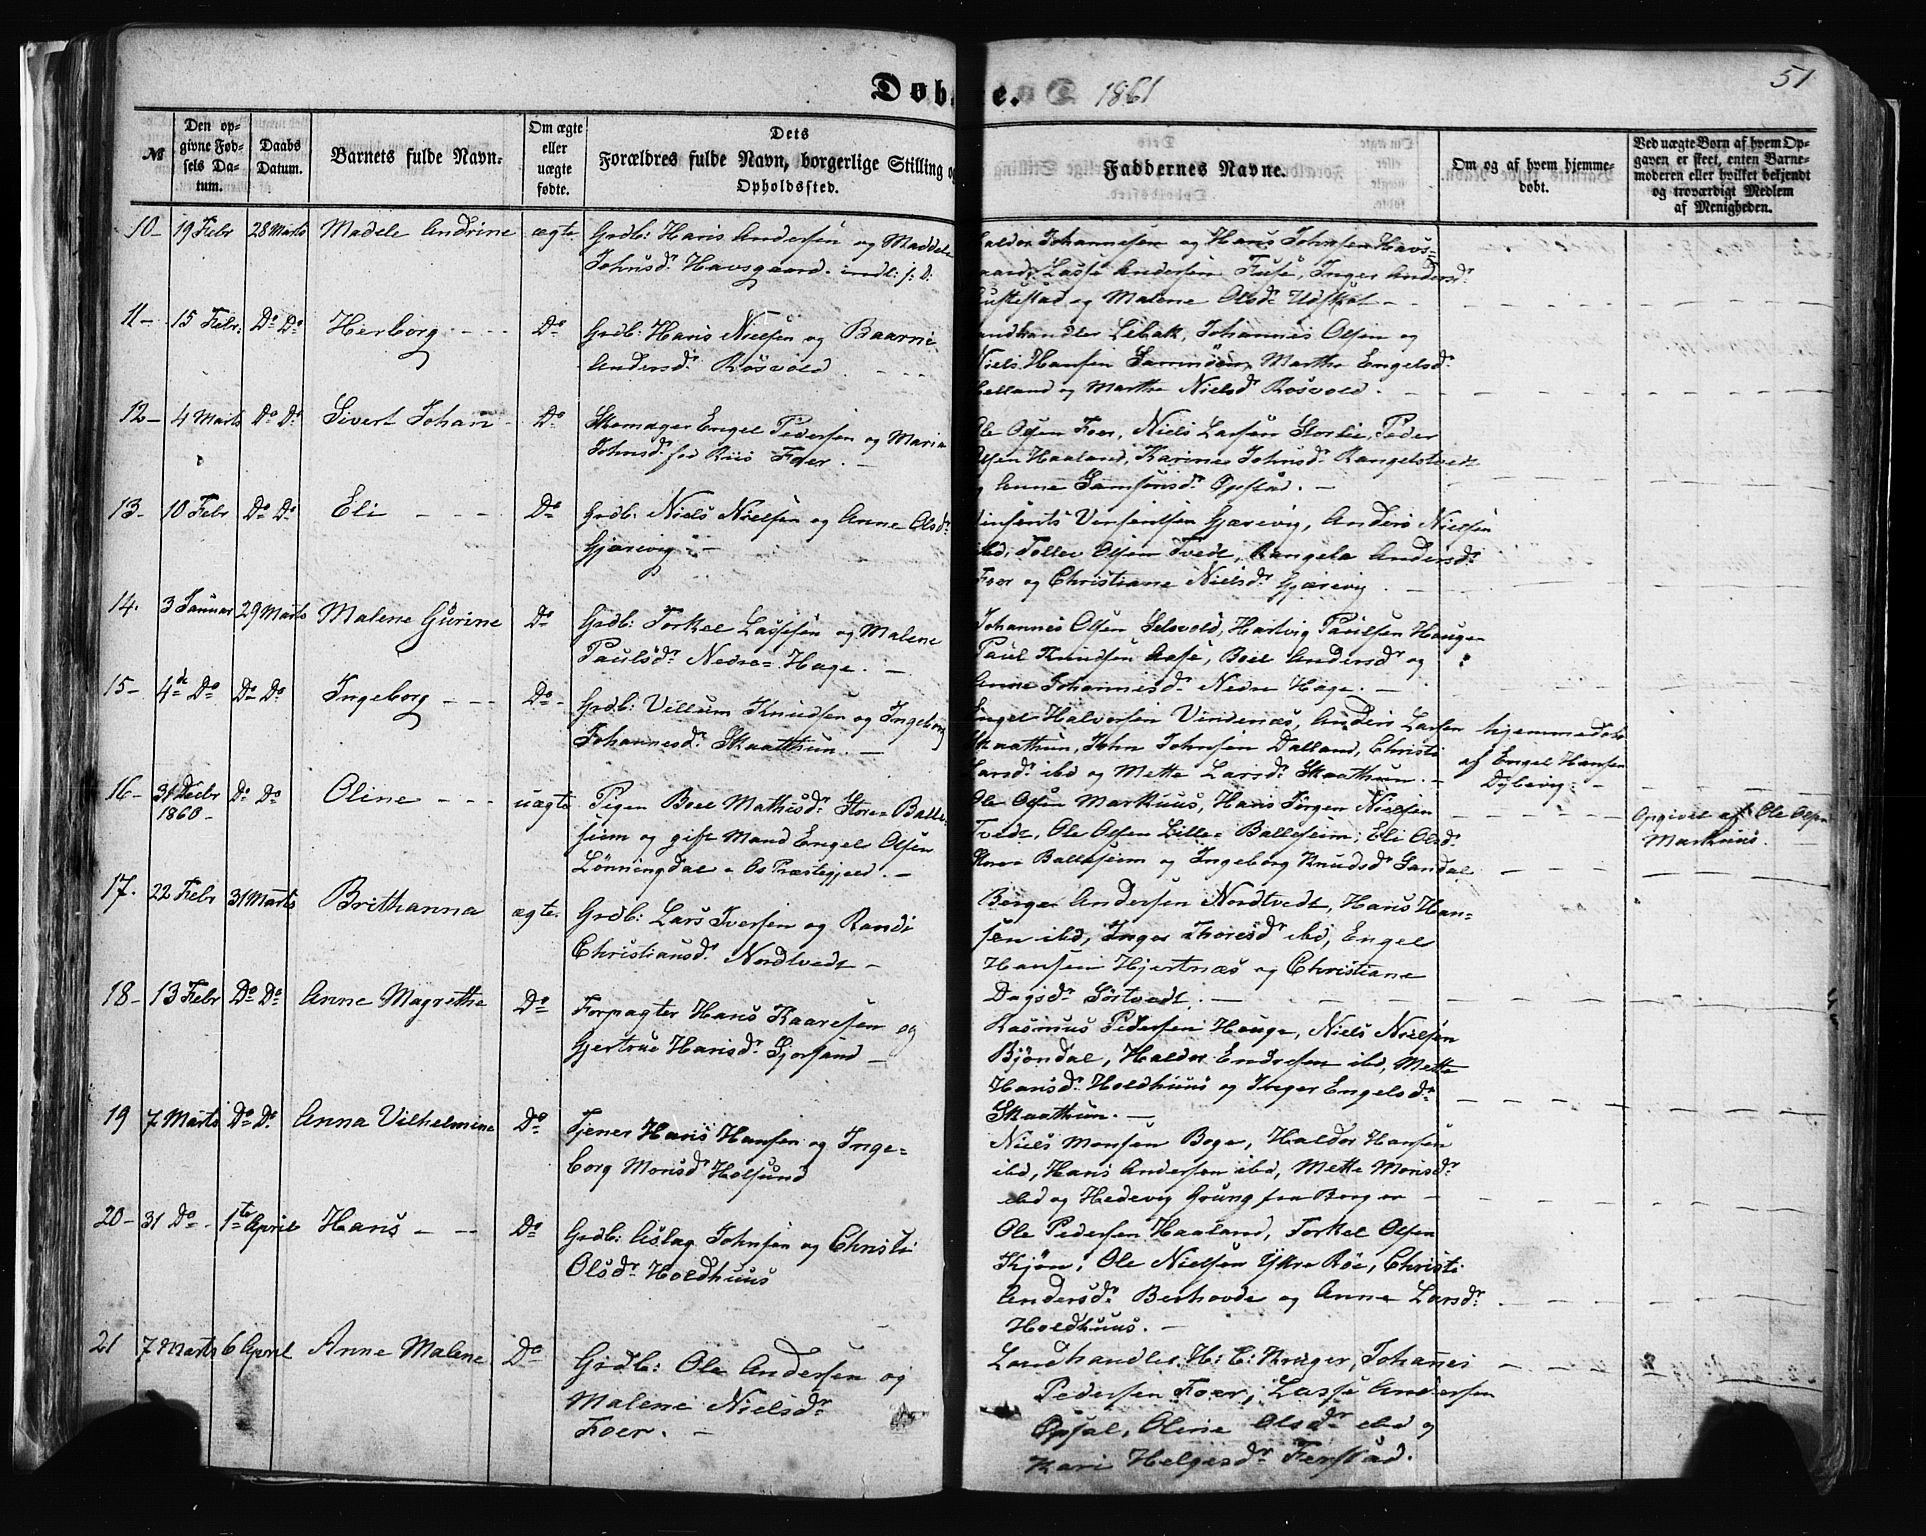 51
Døbte. 1861
№
Den op-
givne Fød-
sels Da-
tum.
Daabs
Datum.
Barnets fulde Navn.
Om ægte
eller
uægte
fødte.
Dets
Forældres fulde Navn, borgerlige Stilling o
Opholdssted.
Faddernes Navne.
Om og af hvem hjemme-
døbt.
Ved uægte Børn af hvem Op-
gaven er skeet, enten Barne-
moderen eller hvilket bekjendt
og troværdigt Medlem
af Menigheden.
10- 19 Febr 28 Marts Madele Andrine ægte Grdb: Hans Andersen og Maddele
Johnsdr Havsgaard. indl: j: D:
Haldor Johannesen og Hans Johnsen Havs-
gaard, Lasse Andersen Fuse, Inger Andersdr
og Malene Olsdr Udskot -
11- 15 Febr: Do Do Herborg - - - Do Grdb: Hans Nielsen og Baarni
Andersdr Rosvold
Landhandler Lebak, Johannes Olsen og
Niels Hansen Marthe Engelsdr
Helland og Marthe Nielsdr Rosvold.
12- 4 Marts Do Do Sivert Johan - Do Skomager Engel Pedersen og Maria
Johnsdr fød Riis Foer. -
Ole Olsen Foer, Niels Larsen Peder
Olsen Haaland, Karine Johnsdr Rangelstvedt
og Anne Samsonsdr Opstad. -
13- 10 Febr Do Do Eli - - - Do Grdb: Niels Nielsen og Anne Olsdr
Gjærevig -
Vinsents Vinsentsen Gjærevig, Anders Nielsen
ibd, Tollev Olsen Tvedt, Rangela Andersdr
Foer og Christiane Nielsdr Gjærevig
14. 3 Januar 29 Marts Malene Gurine Do Grdb: Torkel Lassesen og Malene
Paulsdr Nedre Hage. -
Johannes Olsen Selsvold, Hartvig Paulsen Hauge
Paul Knudsen Aase, Boel Andersdr og
Anne Johannesdr Nedre Hage. -
15- 4de Do Do Do Ingeborg - - - Do - Grdb: Villum Knudsen og Ingeborg
Johannesdr Skaathun. -
Engel Halvorsen Vindenæs, Anders Larsen
Skaathun, John Johnsen Dalland, Christi
Larsdr ibd og Mette Larsdr Skaathun. -
hjemmedøbt
af Engel Hansen
Dybevig. -
16- 31 Decbr
1860 -
Do Do Oline - - - uægte Pigen Boel Mathisdr Store Balle-
seim og gift Mand Engel Olsen
Lønningdal - Os Præstegjeld. -
Ole Olsen Markuus, Hans Jørgen Nielsen
Tvedt, Ole Olsen Lille Balleseim, Eli Olsdr
Store Balleseim og Ingeborg Knudsdr Sandal
Opgivet af Ole Olsen
Markuus.
17. 22 Febr 31 Marts Brithanna ægte Grdb: Lars Iversen og Randi
Christiansdr Nordtvedt -
Børge Andersen Nordtvedt, Hans Han-
sen ibd, Inger Thoresdr ibd, Engel
Hansen Hjertnæs og Christiane
Dagsdr Sørtvedt. -
18- 13 Febr Do Do Anne Magrethe Do Forpagter Hans Kaaresen og
Gjertrue Hansdr Gjorsand -
Rasmus Pedersen Hauge, Niels Nielsen
Bjøndal, Haldor Endresen ibd, Mette
Hansdr Holdhuus og Inger Engelsdr
Skaathun. -
19 7 Marts Do Do Anna Vilhelmine Do Tjener Hans Hansen og Inge-
borg Monsdr Holsund
Niels Monsen Boge, Haldor Hansen
ibd, Hans Andersen ibd, Mette Monsdr
ibd og Hedevig Grung fra Bergen -
20- 31 Do - 1te April Hans - - Do Grdb: Aslag Johnsen og Christi
Olsdr Holdhuus
Ole Pedersen Haaland, Torkel Olsen
Kjøn, Ole Nielsen Ytre Røe, Christi
Andersdr Berhovde og Anne Larsdr
Holdhuus. -
21 7 Marts 6 April Anne Malene Do Grdb: Ole Andersen og
Malene Nielsdr
Foer. -
Landhandler H: C: Krüger, Johannes
Pedersen Foer, Lasse Andersen
Opsal, Oline Olsdr ibd og
Kari Helgesdr Ferstad.